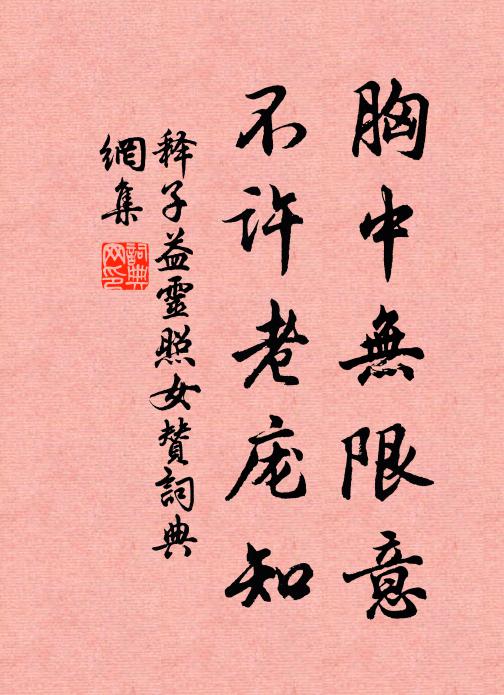 胸中無限意
不许老庞知
释子益靈照女赞詞典
網集
詞典
网印